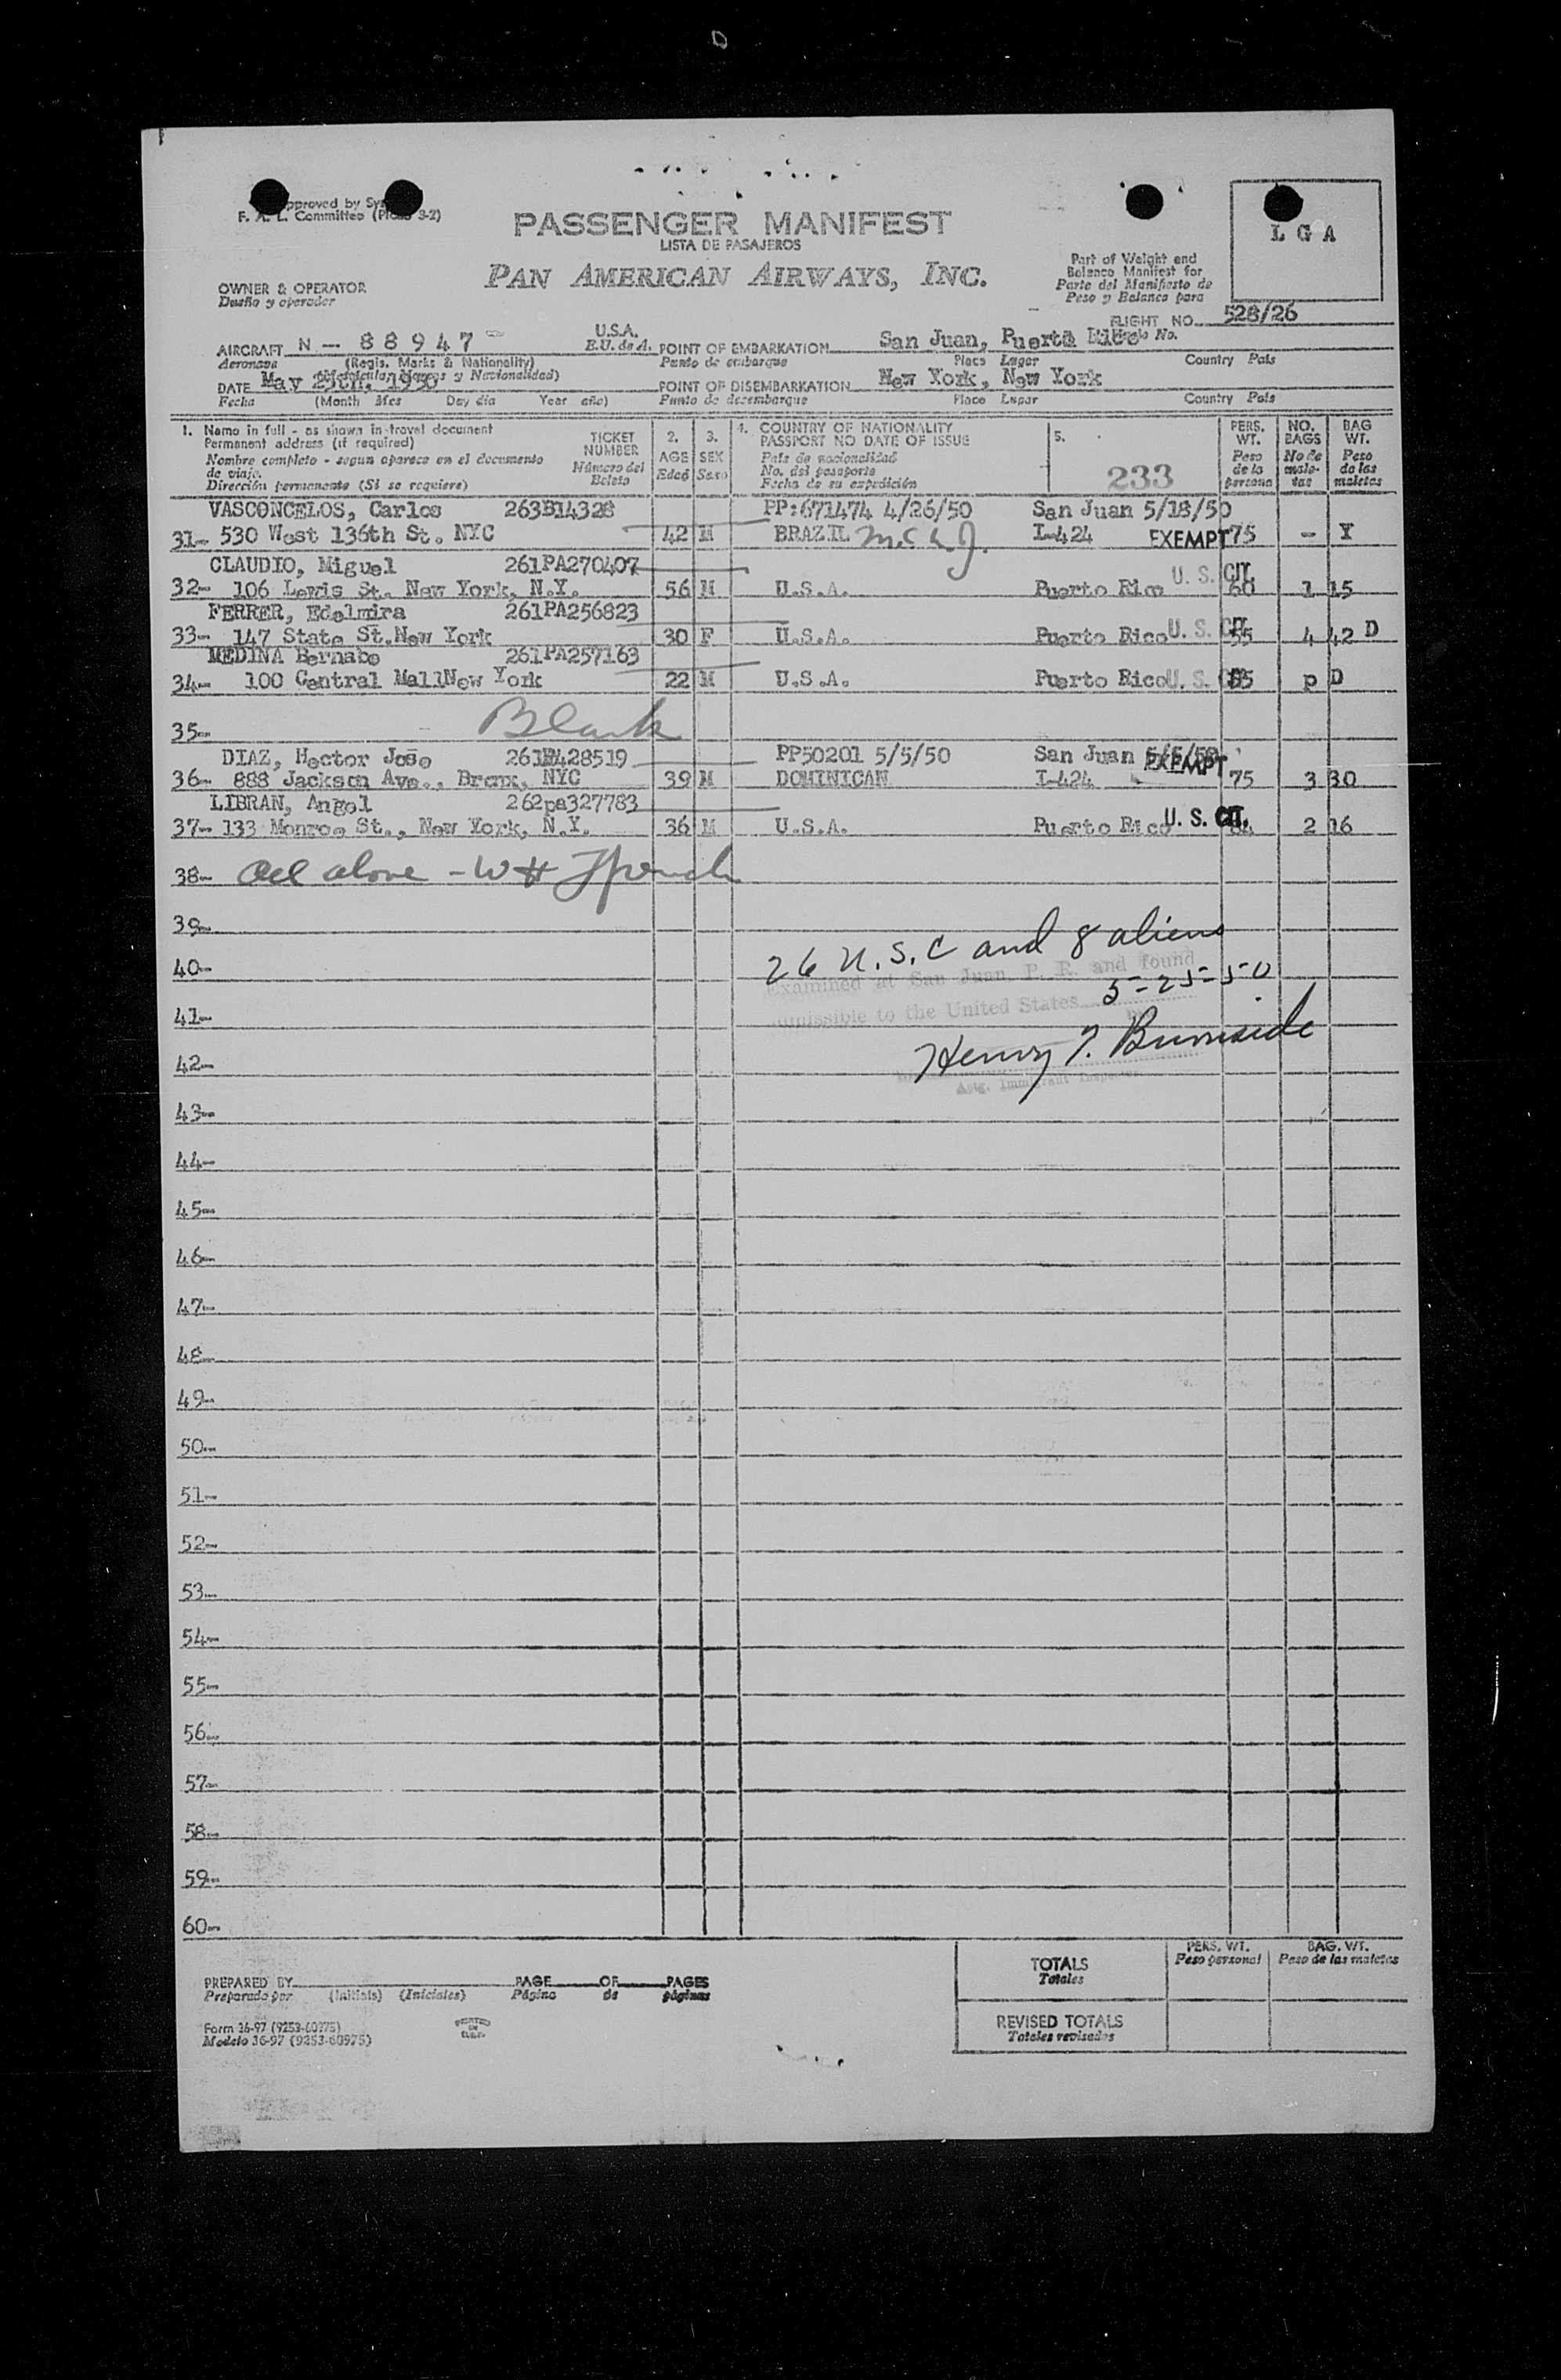 Approved by Sy
F. A. L. Committee (P 3-2)
PASSENGER MANIFEST
LISTA DE PASAJEROS
PAN AMERICAN AIRWAYS, INC.
L G A
Part of Weight and
Balance Manifest for
Parte del Manifiesto de
Peso y Balance para
OWNER & OPERATOR
Dueño y operador
FLIGHT NO. 528/26
AIRCRAFT N - 88947 U.S.A. POINT OF EMBARKATION San Juan, Puerto Rico
Aeronave (Regis. Marks & Nationality) E.U. de A. Punto de embarque Place Lugar Country País
(Matrícula, Marcas y Nacionalidad)
DATE May 25th, 1950 POINT OF DISEMBARKATION New York, New York
Fecha (Month Mes Day día Year año) Punto de desembarque Place Lugar Country País
1. Name in full - as shown in travel document
Permanent address (if required)
Nombre completo - segun aparece en el documento
de viaje.
Dirección permanente (Si se requiere)
TICKET
NUMBER
Número del
Boleto
2.
AGE
Edad
3.
SEX
Sexo
4. COUNTRY OF NATIONALITY
PASSPORT NO DATE OF ISSUE
País de nacionalidad
No. del pasaporte
Fecha de su expedición
5.
233
PERS.
WT.
Peso
de la
persona
NO.
BAGS
No de
male-
tas
BAG
WT.
Peso
de las
maletas
VASCONCELOS, Carlos 263B14328 PP:671474 4/26/50 San Juan 5/18/50
31- 530 West 136th St. NYC 42 M BRAZIL I-424 EXEMPT 75 - X
CLAUDIO, Miguel 261PA270407 U. S. CIT.
32- 106 Lewis St. New York, N.Y. 56 M U.S.A. Puerto Rico 60 1 15
FERRER, Edelmira 261PA256823
33- 147 State St. New York 30 F U.S.A. Puerto Rico U. S. CIT. 55 4 42 D
MEDINA Bernabe 261PA257163
34- 100 Central Mall New York 22 M U.S.A. Puerto Rico U. S. p D
35- Blank
DIAZ, Hector Jose 428519 PP50201 5/5/50 San Juan 5/5/50
36- 888 Jackson Ave., Bronx, NYC 39 M DOMINICAN I-424 EXEMPT 75 3 30
LIBRAN, Angel 262pa327783
37- 133 Monroe St., New York, N.Y. 36 M U.S.A. Puerto Rico U. S. CIT. 2 16
38- All above - W H
39-
26 U.S.C and 8 aliens
40-
Examined at San Juan, P. R. and found
5-25-50
admissible to the United States
41-
Henry T. Burnside
42-
Actg. Immigrant Inspector
43-
44-
45-
46-
47-
48-
49-
50-
51-
52-
53-
54-
55-
56-
57-
58-
59-
60-
PREPARED BY PAGE OF PAGES
Preparado por (Initials) (Iniciales) Página de páginas
TOTALS
Totales
PERS. WT.
Peso personal
BAG. WT.
Peso de las maletas
REVISED TOTALS
Totales revisados
Form 36-97 (9253-60975)
Modelo 36-97 (9253-60975)
PRINTED
IN
U.S.A.